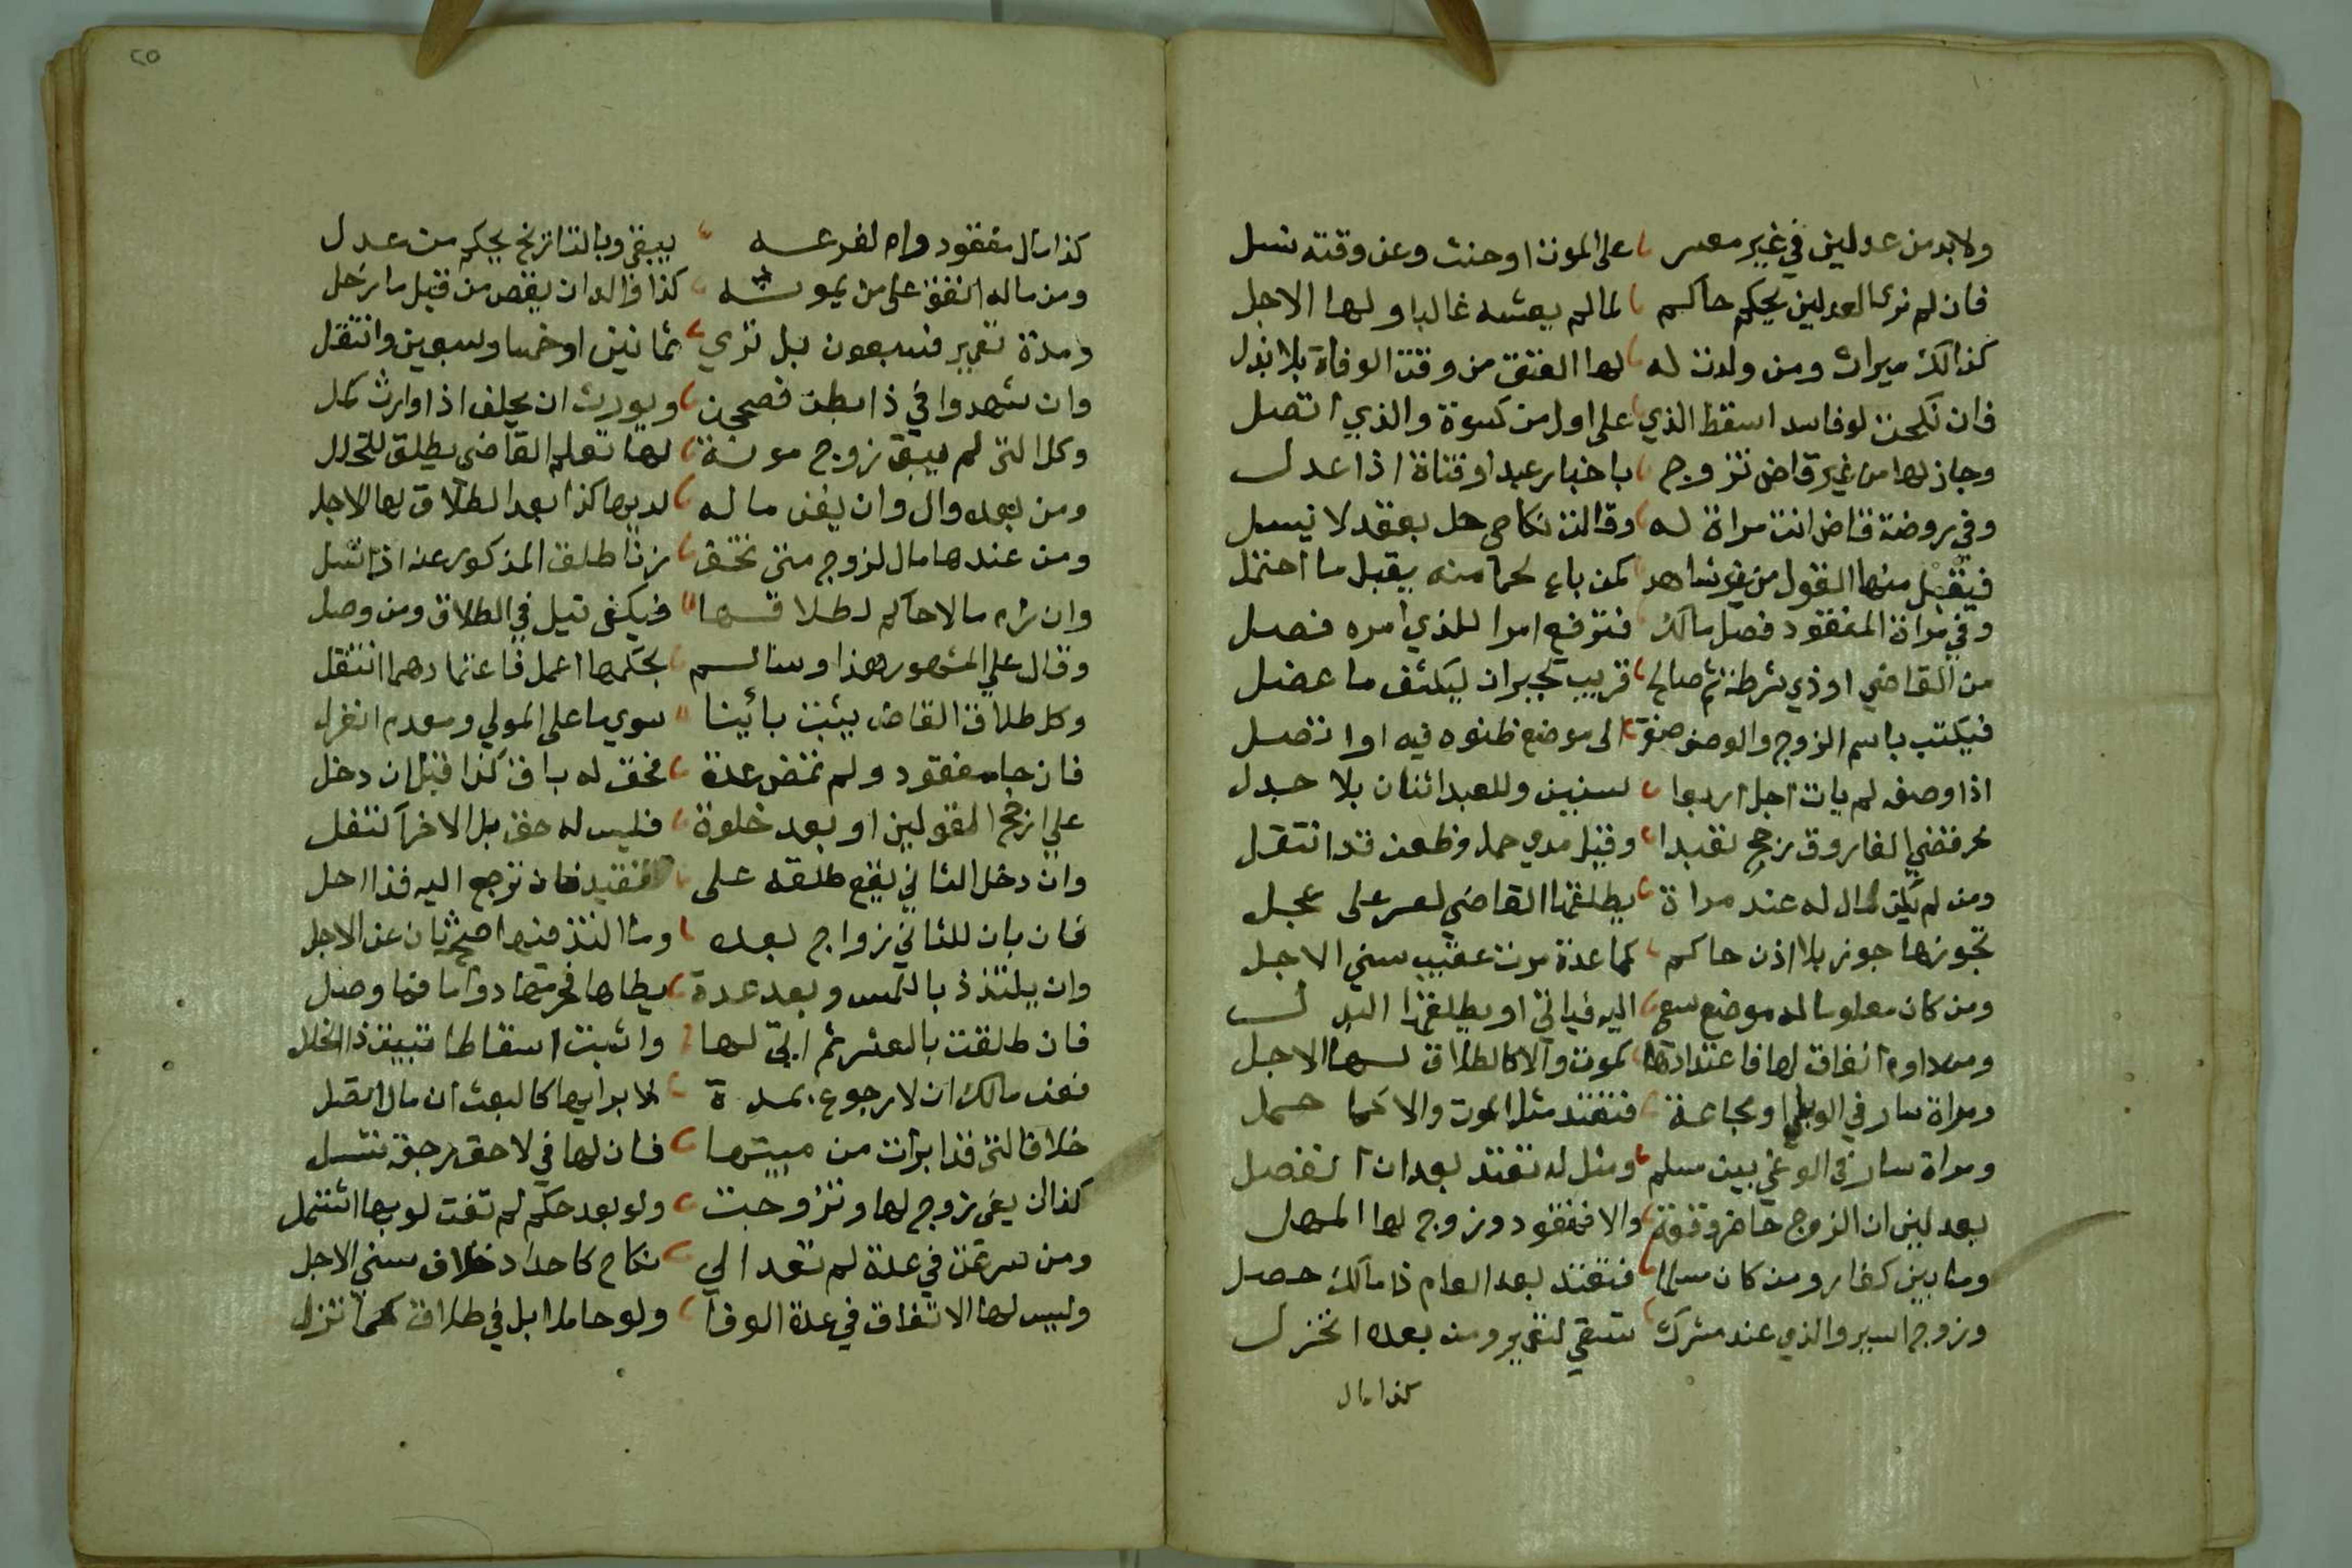 ولا بد من عدلين في غير معسر على الموت او حنث وعن وقته نسل
فان لم نرى العدلين يحكم حاكم لما لم يعشه غالبا ولها الاجل
كذالك ميراث ومن ولدت له لها العتق من وقت الوفاة بلا بذل
فان نكحت لو فاسد اسقط الذي على اول من كسوة والذي اتصل
وجاز لها من غير قاض تزوج باخبار عبد او فتاة اذا عدل
وفي روضة قاض اتت مراة له وقالت نكاحي حل بعقد لا تسل
فيقبل منها القول من غير شاهد كمن باع لحما منه يقبل ما احتمل
وفي مراة المفقود فصل مالك فترفع امرا للذي امره فصل
من القاضي او ذي شرطة ثم صالح قريب لجيران ليكشف ما عضل
فيكتب باسم الزوج والوصف صفوة الى موضع ظنوه فيه او اتصل
اذا وصفه لم يات اجل اربعا سنين وللعبد اثنان بلا جدل
فقضى الفاروق رجح تقيدا وقيل مدي حمل وظعن قد انتقل
ومن لم يكن مال له عند مراة يطلقها القاضي لعسر على عجل
تجوزها جوز بلا اذن حاكم كما عدة موت عقيب سني الاجل
ومن كان معلوما له موضع سعى اليه فياتي او يطلقها البدل
انفاق لها فاعتدادها كموت والا كالطلاق لها الاجل
ومراة سار في الوبا او مجاعة فتعتد مثل الموت والا كما حمل
ومراة سار في الوغي بين مسلم ومثل له تعتد بعد ان انفصل
بعدلين ان الزوج حاضر وقوفه والا فمفقود وزوج لها المهل
وما بين كفار ومن كان مسلما فتعتد بعد العام ذا مالك حصل
وزوج اسير والذي عند مشرك ستبقي لتعمير ومن بعده اختزل
كذا مال
٢٥
كذا مال مفقود وام لفرعه يبقى وبالتاريخ يحكم من عدل
ومن ماله انفق على من يمونه كذا والدان يقص من قبل ما رحل
ومدة تعمير فسبعون بل تري ثمانين او خمسا وسبعين وانتقل
وان شهدوا في ذا بظن فصححن ويورث ان يحلف اذا وارث كمل
وكل التي لم يبق زوج مونة لها تعلم القاضي يطلق للخلل
ومن بعده وال وان يفن ماله لديها كذا بعد الطلاق لها الاجل
ومن عندها مال لزوج متى تخف زنا طلق المذكور عنه اذا تسل
وان ترم مالا حاكم لطلاقها فيكفي قيل في الطلاق ومن وصل
وقال علي المشهور هذا وسالم بحكمها اعمل فاعتمادهما انتقل
وكل طلاق القاض يثبت بائنا سوي ما على المولي ومعدم انغزل
فان جا مفقود ولم تمض عدة فحق له باق كذا قبل ان دخل
علي ارجح القولين او بعد خلوة فليس له حق بل الاخر انتقل
وان دخل الثاني يقع طلقه على الفقيد فان ترجع اليه فذا احل
فان بان للثاني زواج بعده وما التذ منها صح ثان عن الاجل
وان يلتذذ باللمس وبعد عدة يطاها فحرمتها دواما فما وصل
فان طلقت بالعسر ثم ابي لها واثبت اسقاطا تبين ذا الخلل
فعن مالك ان لا رجوع بمدة لابرائها كالبعث ان مال اتصل
خلافا لتي قد ابرات من مبيتها فان لها في لاحق رجعة تسل
كذا ان يعي زوج لها وتزوجت ولو بعد حكم لم تفت لو بها اشتمل
ومن سرعت في عدة لم تعد الي نكاح كاحداد خلاف سني الاجل
وليس لها الانفاق في عدة الوفا ولو حاملا بل في طلاق كما نزل